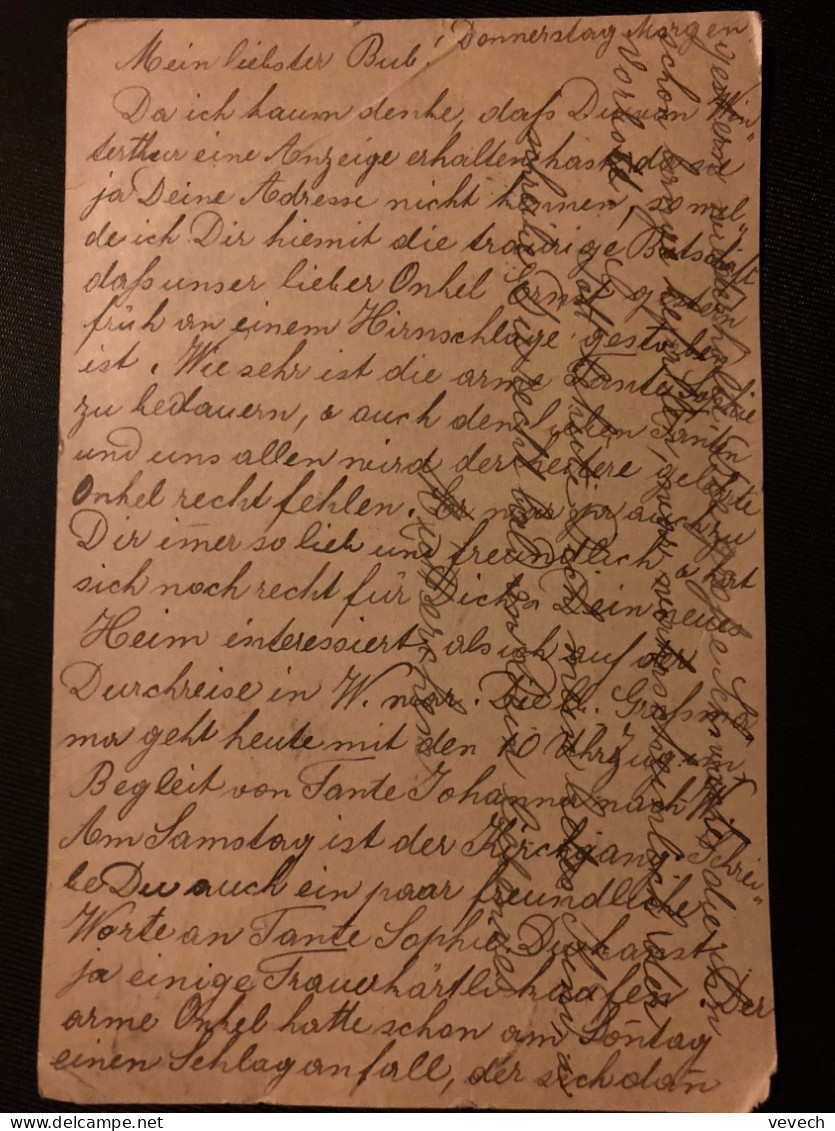 Donnerstag Morgen
Mein liebster Bub!
Da ich kaum denke, daß Du von Win„
terthur eine Anzeige erhalten hast, da sie
ja Deine Adresse nicht kennen, so mel„
de ich Dir hiemit die traurige Botschaft
daß unser lieber Onkel Ernst gestern
früh an einem Hirnschlage gestorben
ist. Wie sehr ist die arme Tante Sophie
zu bedauern, & auch den lieben Tanten
und uns allen wird der heitere geliebte
Onkel recht fehlen. Er war ja auch zu
Dir im̄er so lieb und freundlich & hat
sich noch recht für Dich & Dein neues
Heim interessiert, als ich auf der
Durchreise in W. war. Die lb. Großma
ma geht heute mit den 10 Uhrzug in
Begleit von Tante Johanna nach W.
Am Samstag ist der Kirchgang. Schrei„
be Du auch ein paar freundliche
Worte an Tante Sophie. Du kannst
ja einige Trauerkärtli kaufen. Der
arme Onkel hatte schon am Son̄tag
einen Schlaganfall, der sich dan̄
gestern wiederholte. Die große Schwäche, die ihn
schon lange
Vorbote
schreibe Du recht bald
Mütterchen